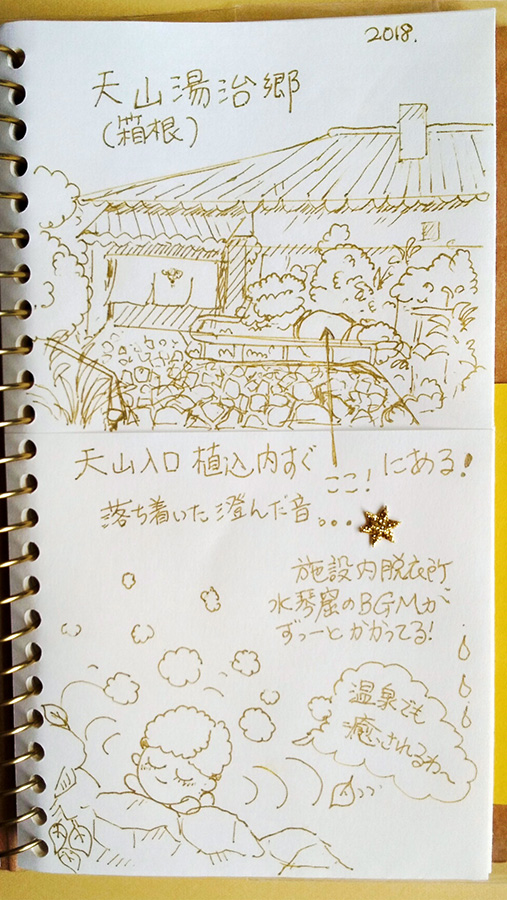 2018.
天山湯治郷
(箱根)
天山入口 植込内すぐ ここ! にある!
落ち着いた澄んだ音。。。
施設内脱衣所
水琴窟のBGMが
ずっーとかかってる!
温泉でも
癒されるわ〜